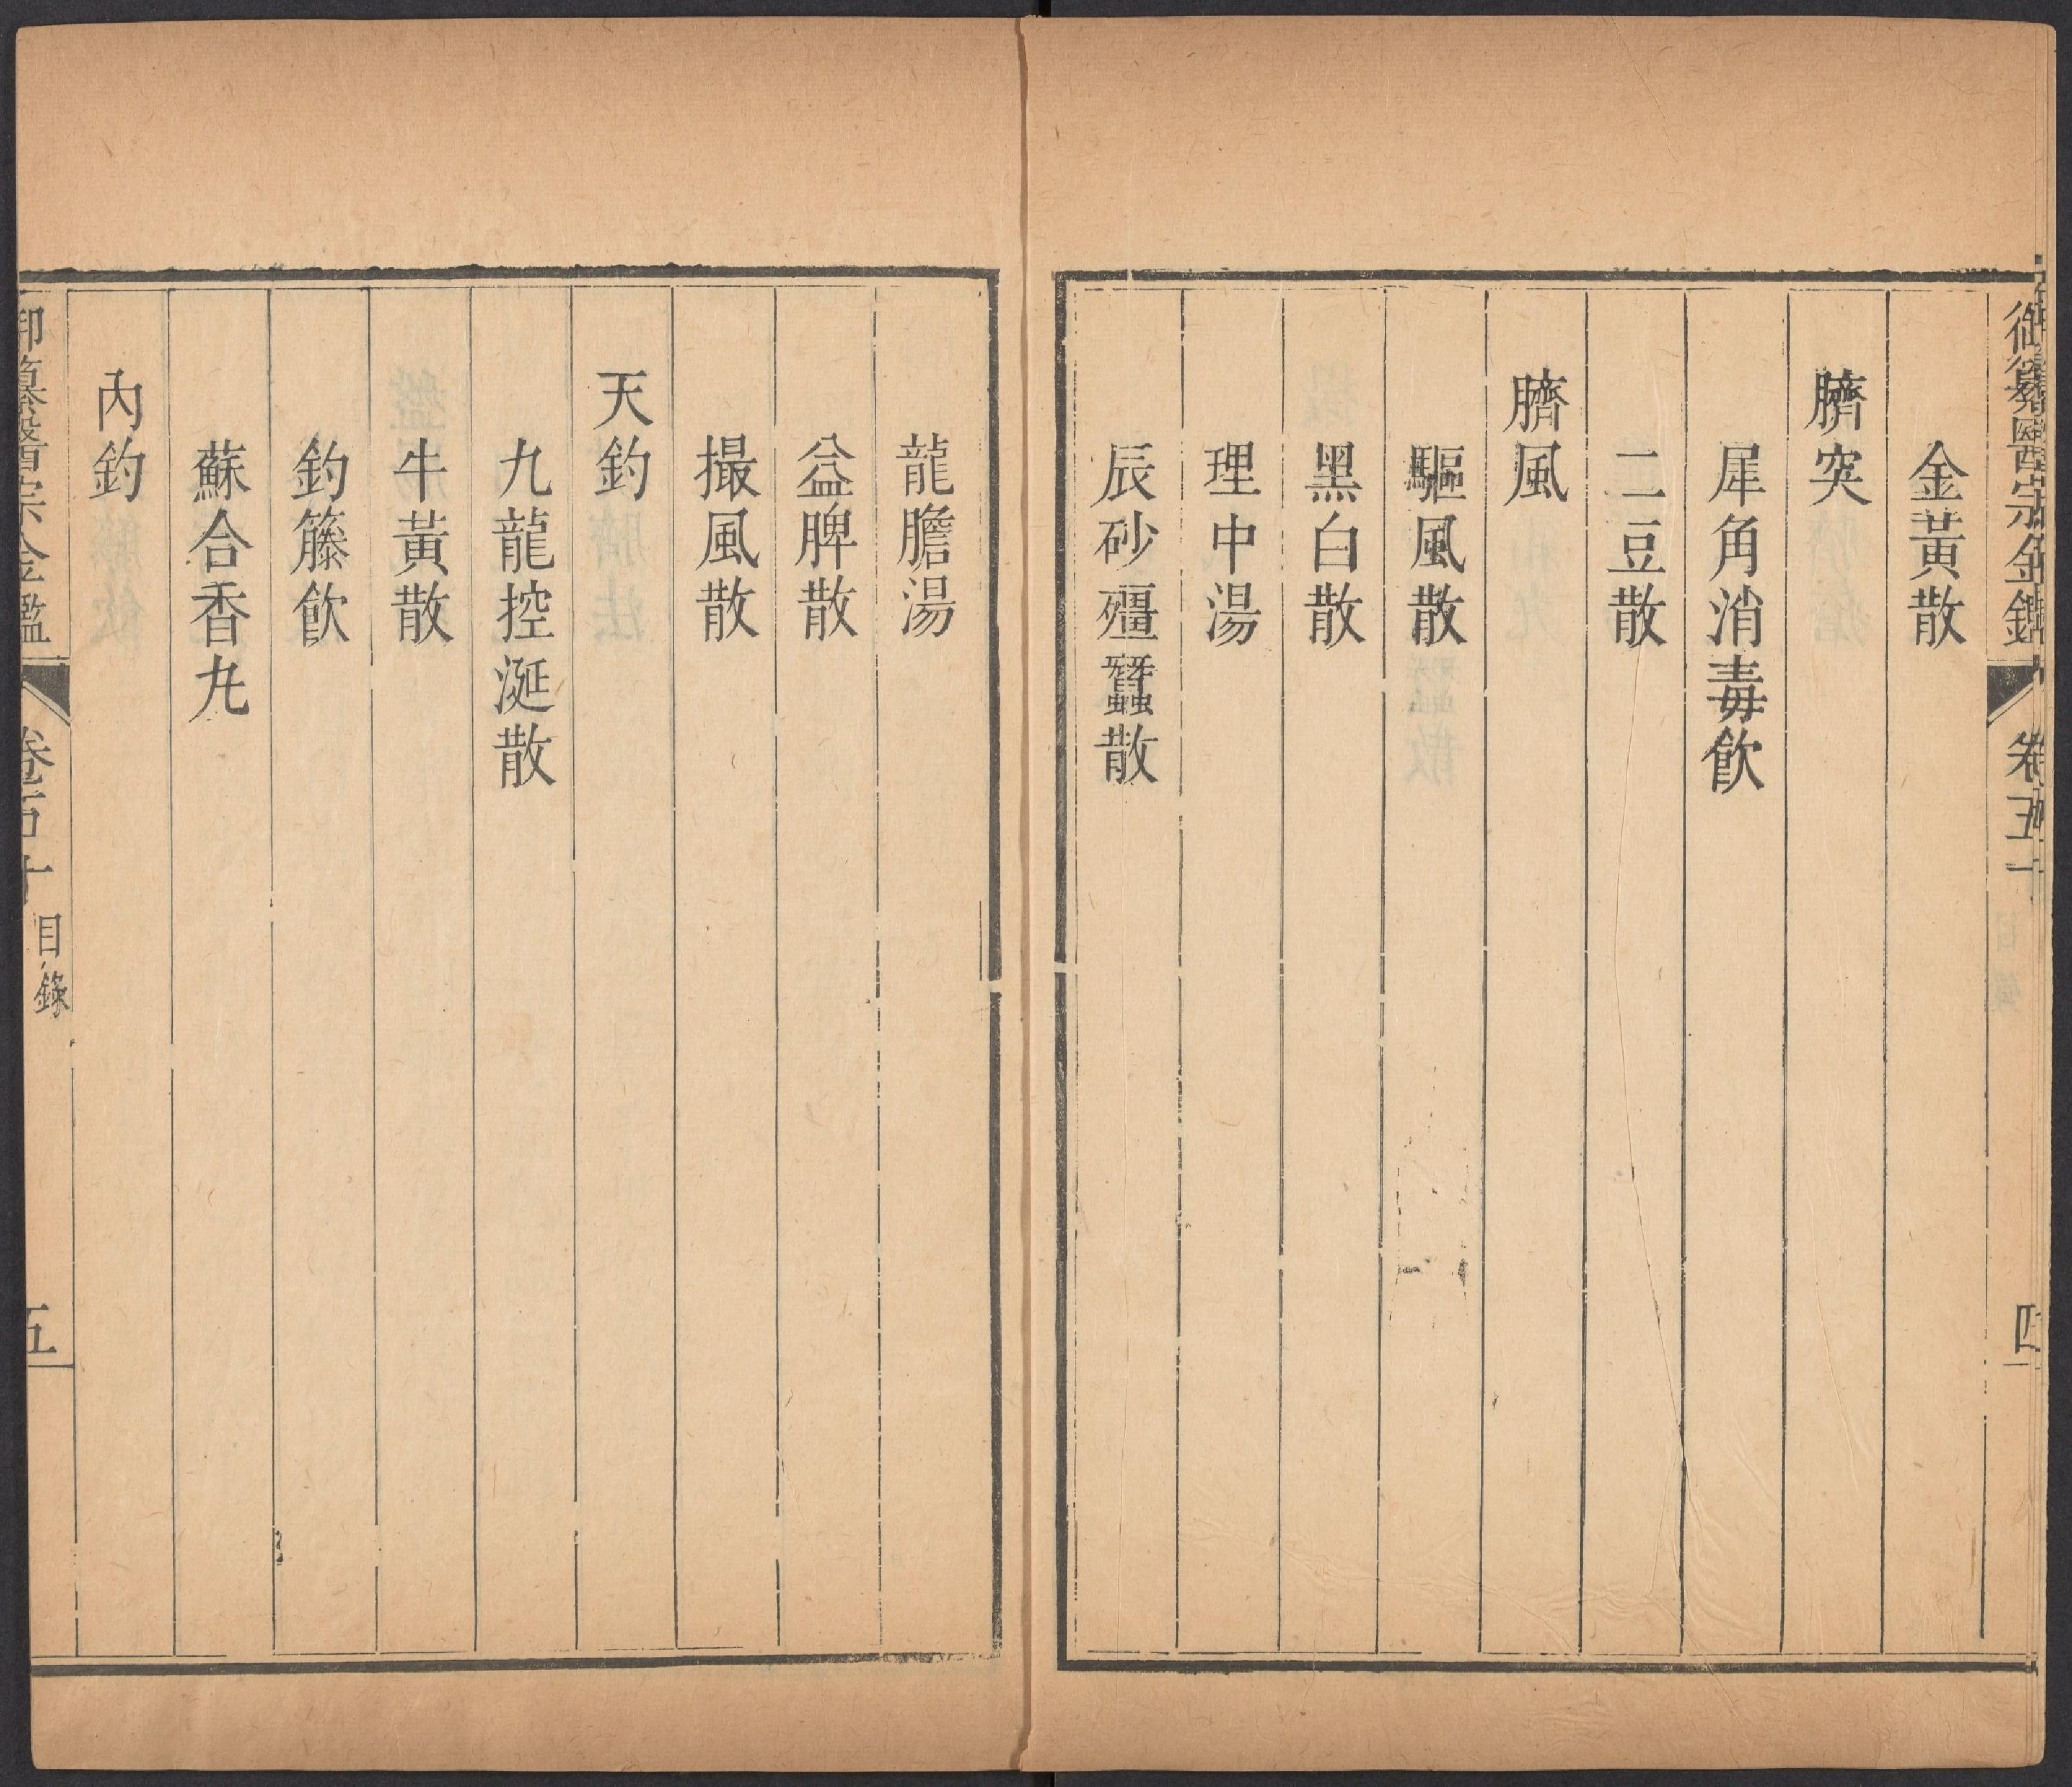 御纂醫宗金鑑 卷五十 四
金黃散
臍突
犀角消毒飲
二豆散
臍風
驅風散
黑白散
理中湯
辰砂殭蠶散
龍膽湯
益脾散
撮風散
天釣
九龍控涎散
牛黃散
釣籐飲
蘇合香丸
內釣
御纂醫宗金鑑 卷五十 目錄 五